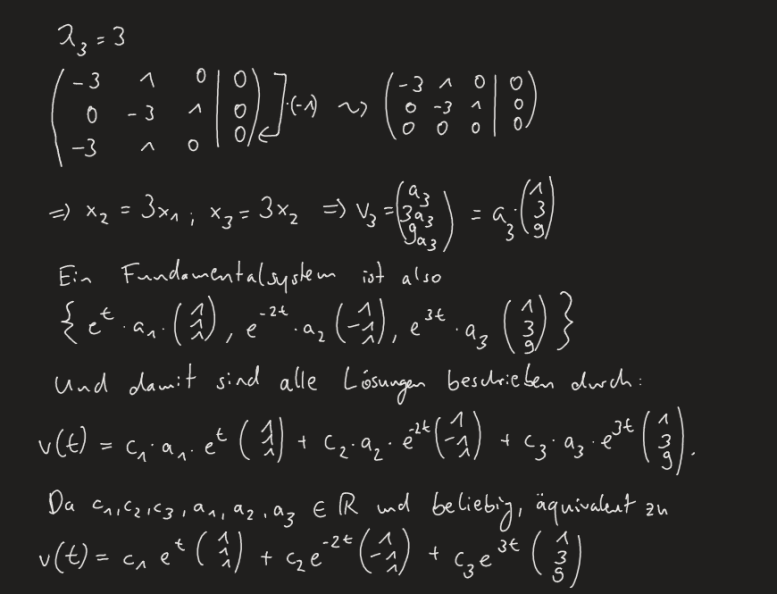 λ₃ = 3
( -3 1 0 | 0 ; 0 -3 1 | 0 ; -3 1 0 | 0 ) ·(-1) ⇝ ( -3 1 0 | 0 ; 0 -3 1 | 0 ; 0 0 0 | 0 )
⇒ x₂ = 3x₁, x₃ = 3x₂ ⇒ v₃ = ( a₃ ; 3a₃ ; 9a₃ ) = a₃ · ( 1 ; 3 ; 9 )
Ein Fundamentalsystem ist also
{ eᵗ · a₁ · ( 1 ; 1 ; 1 ), e⁻²ᵗ · a₂ ( 1 ; -1 ; 1 ), e³ᵗ · a₃ ( 1 ; 3 ; 9 ) }
Und damit sind alle Lösungen beschrieben durch:
v(t) = c₁ · a₁ · eᵗ ( 1 ; 1 ; 1 ) + c₂ · a₂ · e⁻²ᵗ ( 1 ; -1 ; 1 ) + c₃ · a₃ · e³ᵗ ( 1 ; 3 ; 9 ).
Da c₁, c₂, c₃, a₁, a₂, a₃ ∈ ℝ und beliebig, äquivalent zu
v(t) = c₁ eᵗ ( 1 ; 1 ; 1 ) + c₂ e⁻²ᵗ ( 1 ; -1 ; 1 ) + c₃ e³ᵗ ( 1 ; 3 ; 9 )